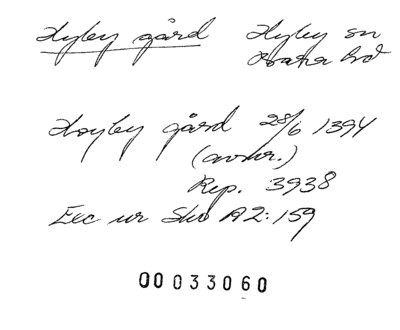 Hyby gård Hyby sn
Bara hd
Høyby gård 28/6 1394
(avskr.)
Rep. 3938
Exc ur Sko A2:159
00033060